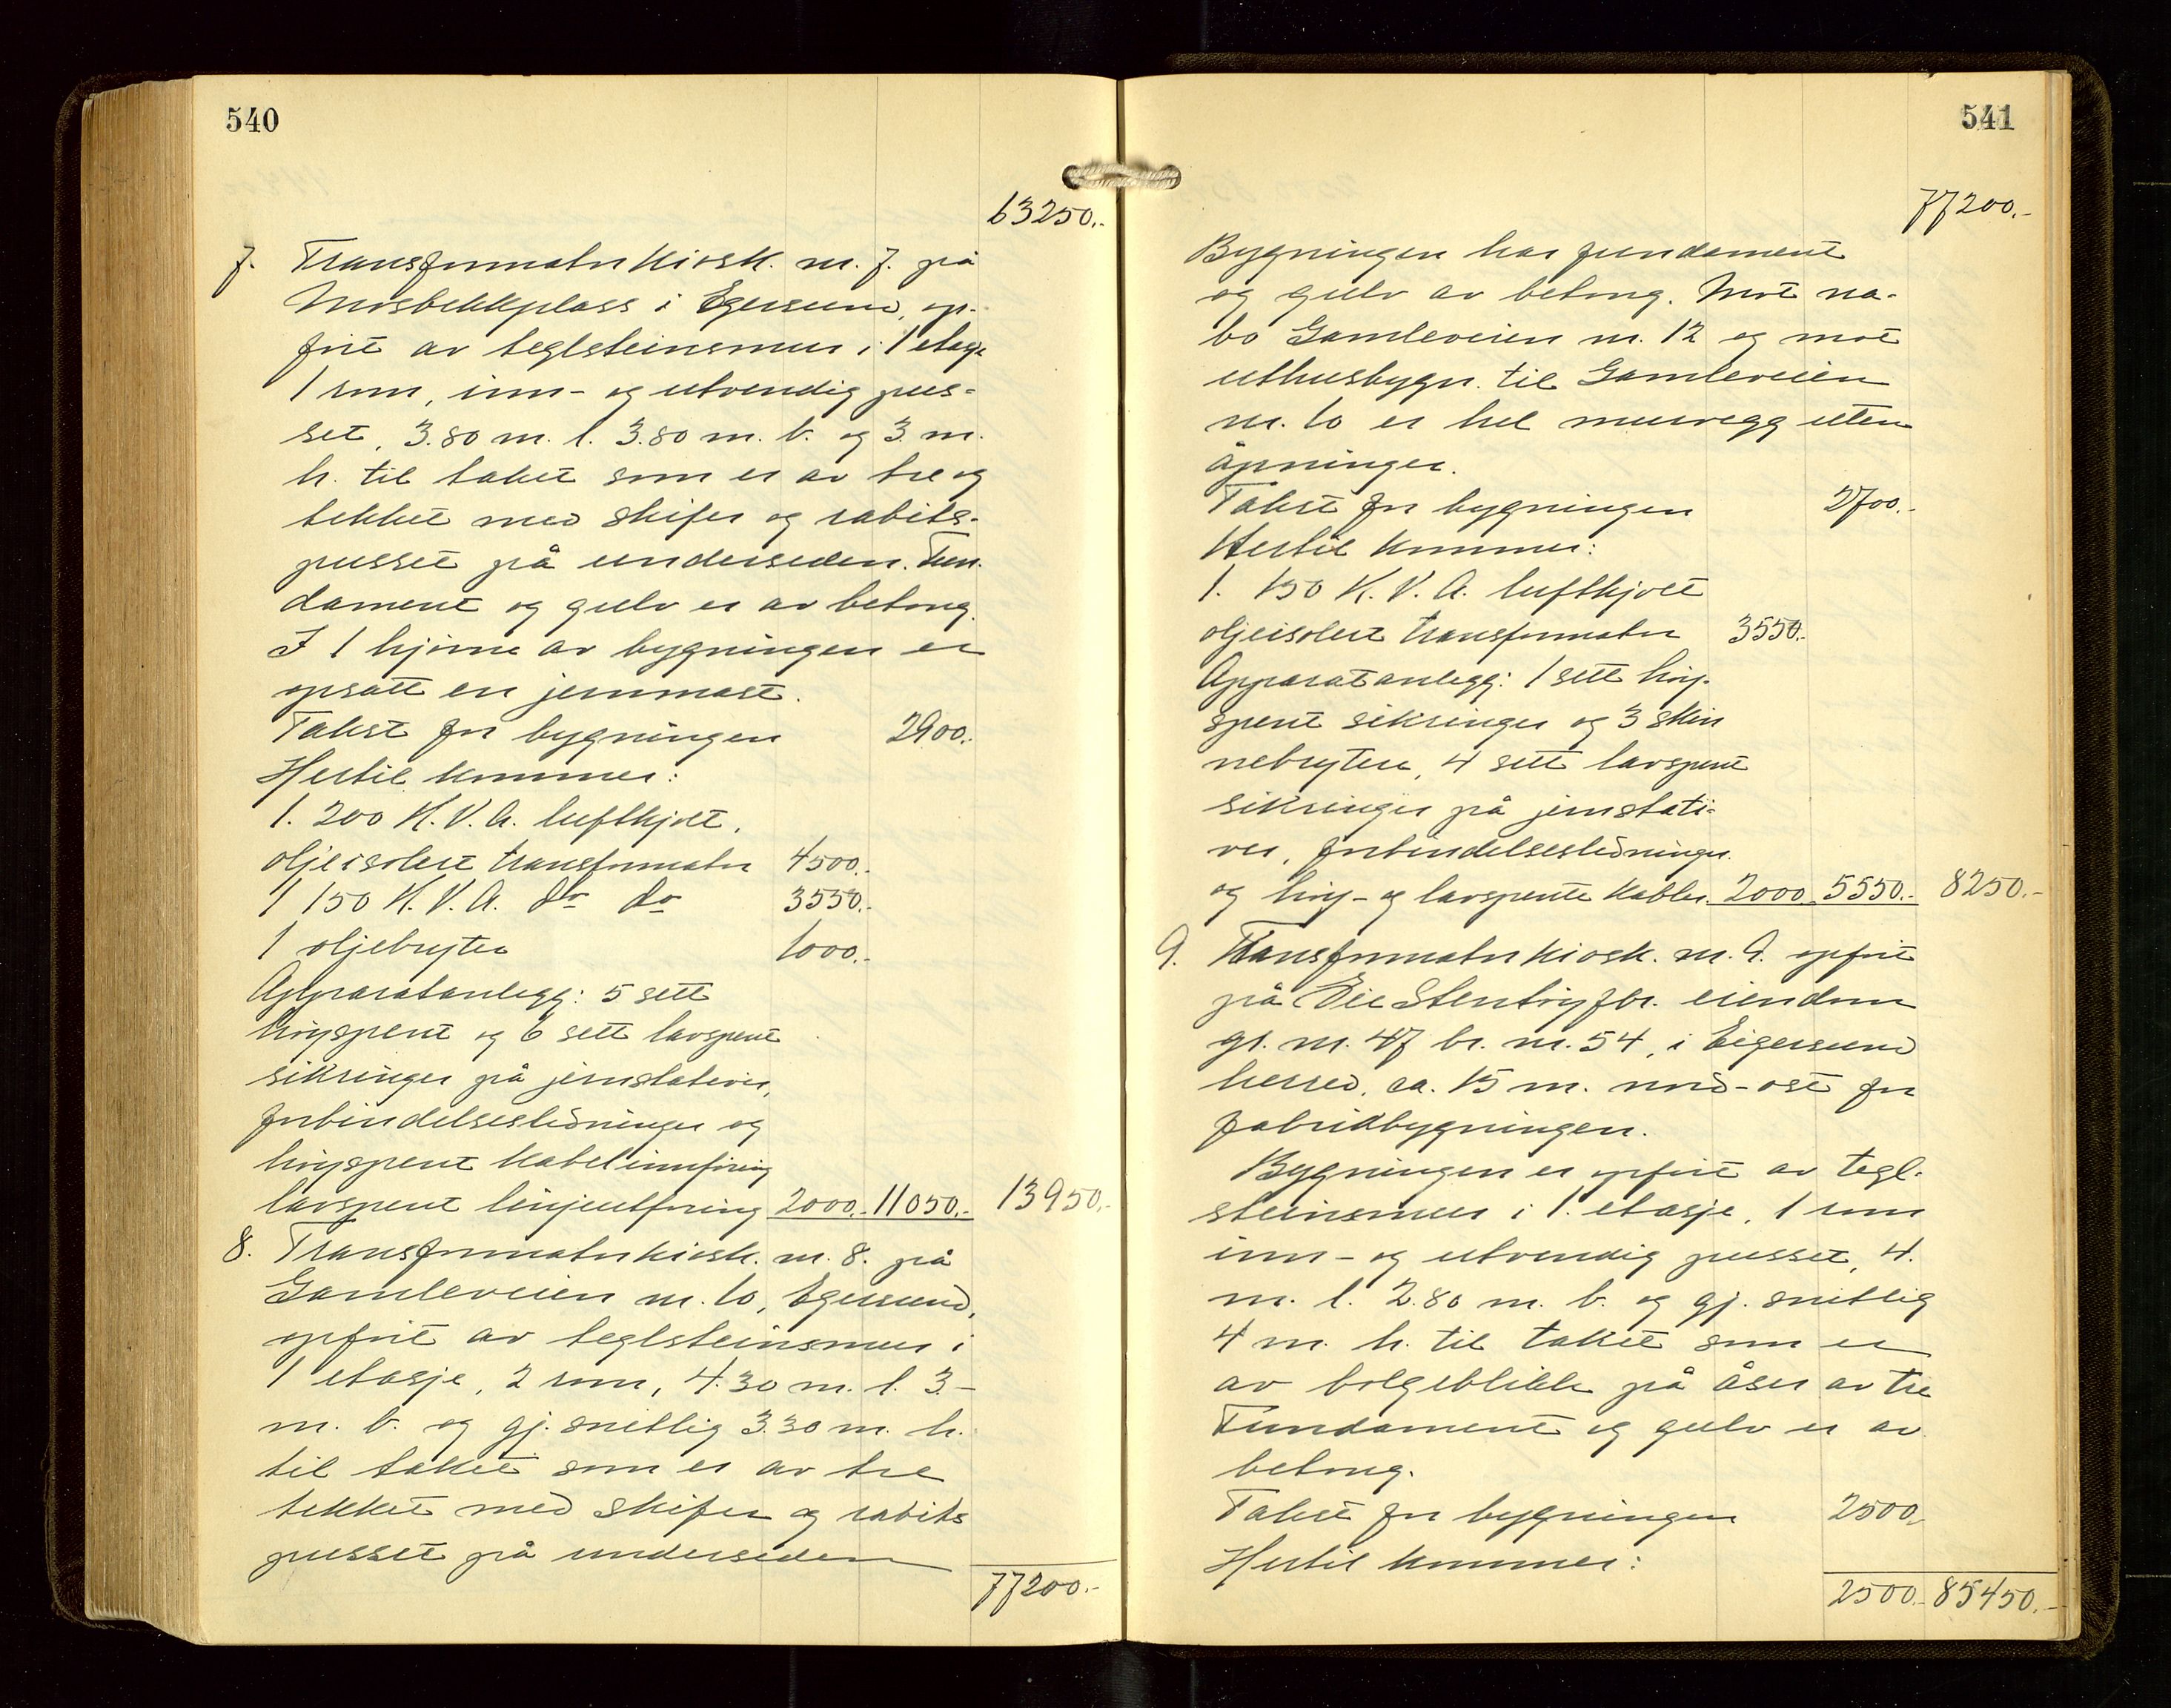 540
63250.-
7. Transformatorkiosk nr. 7. på
Mosbekkplass i Egersund, op-
ført av teglsteinsmur i 1 etasje
1 rom, inn- og utvendig pus-
set, 3.80 m. l. 3.80 m. b. og 3 m.
h. til taket som er av tre og
tekket med skifer og rabits-
pusset på undersiden. Fun-
dament og gulv er av betong.
I 1 hjørne av bygningen er
opsatt en jernmast.
Takst for bygningen 2900.-
Hertil kommer:
1. 200 K.V.A. luftkjølt,
oljeisolert transformator 4500.-
1 150 K.V.A. do do 3550.-
1 oljebryter 1000.-
Apparatanlegg: 5 sett
høyspent og 6 sett lavspent
sikringer på jernstativer,
forbindelsesledninger og
høyspent kabelinnføring
lavspent linjeutføring 2000.- 11050.- 13950.-
8. Transformatorkiosk nr. 8. på
Gamleveien nr. 10, Egersund,
opført av teglsteinsmur i
1 etasje, 2 rom, 4.30 m. l. 3.-
m. b. og gj. snitlig 3.30 m. h.
til taket som er av tre
tekket med skifer og rabits
pusset på undersiden
77200.-
541
77200.-
Bygningen har fundament
og gulv av betong. Mot na-
bo Gamleveien nr. 12 og mot
uthusbygn. til Gamleveien
nr. 10 er hel murvegg uten
åpninger.
Takst for bygningen 2700.-
Hertil kommer:
1. 150 K.V.A. luftkjølt
oljeisolert transformator 3550.-
Apparatanlegg: 1 sett høy-
spent sikringer og 3 skin
nebrytere, 4 sett lavspent
sikringer på jernstati-
ver, forbindelsesledninger
og høy- og lavspente kabler. 2000.- 5550.- 8250.-
9. Transformatorkiosk nr. 9. opført
på Eie Stentøyfbr. eiendom
gr. nr. 47 br. nr. 54, i Eigersund
herred, ca. 15 m. nord-øst for
fabrikbygningen.
Bygningen er opført av tegl-
steinsmur i 1. etasje, 1 rom
inn- og utvendig pusset, 4.
m. l. 2.80 m. b. og gj. snitlig
4 m. h. til taket som er
av bølgeblikk på åser av tre
Fundament og gulv er av
betong.
Takst for bygningen 2500.-
Hertil kommer:
2500.- 85450.-